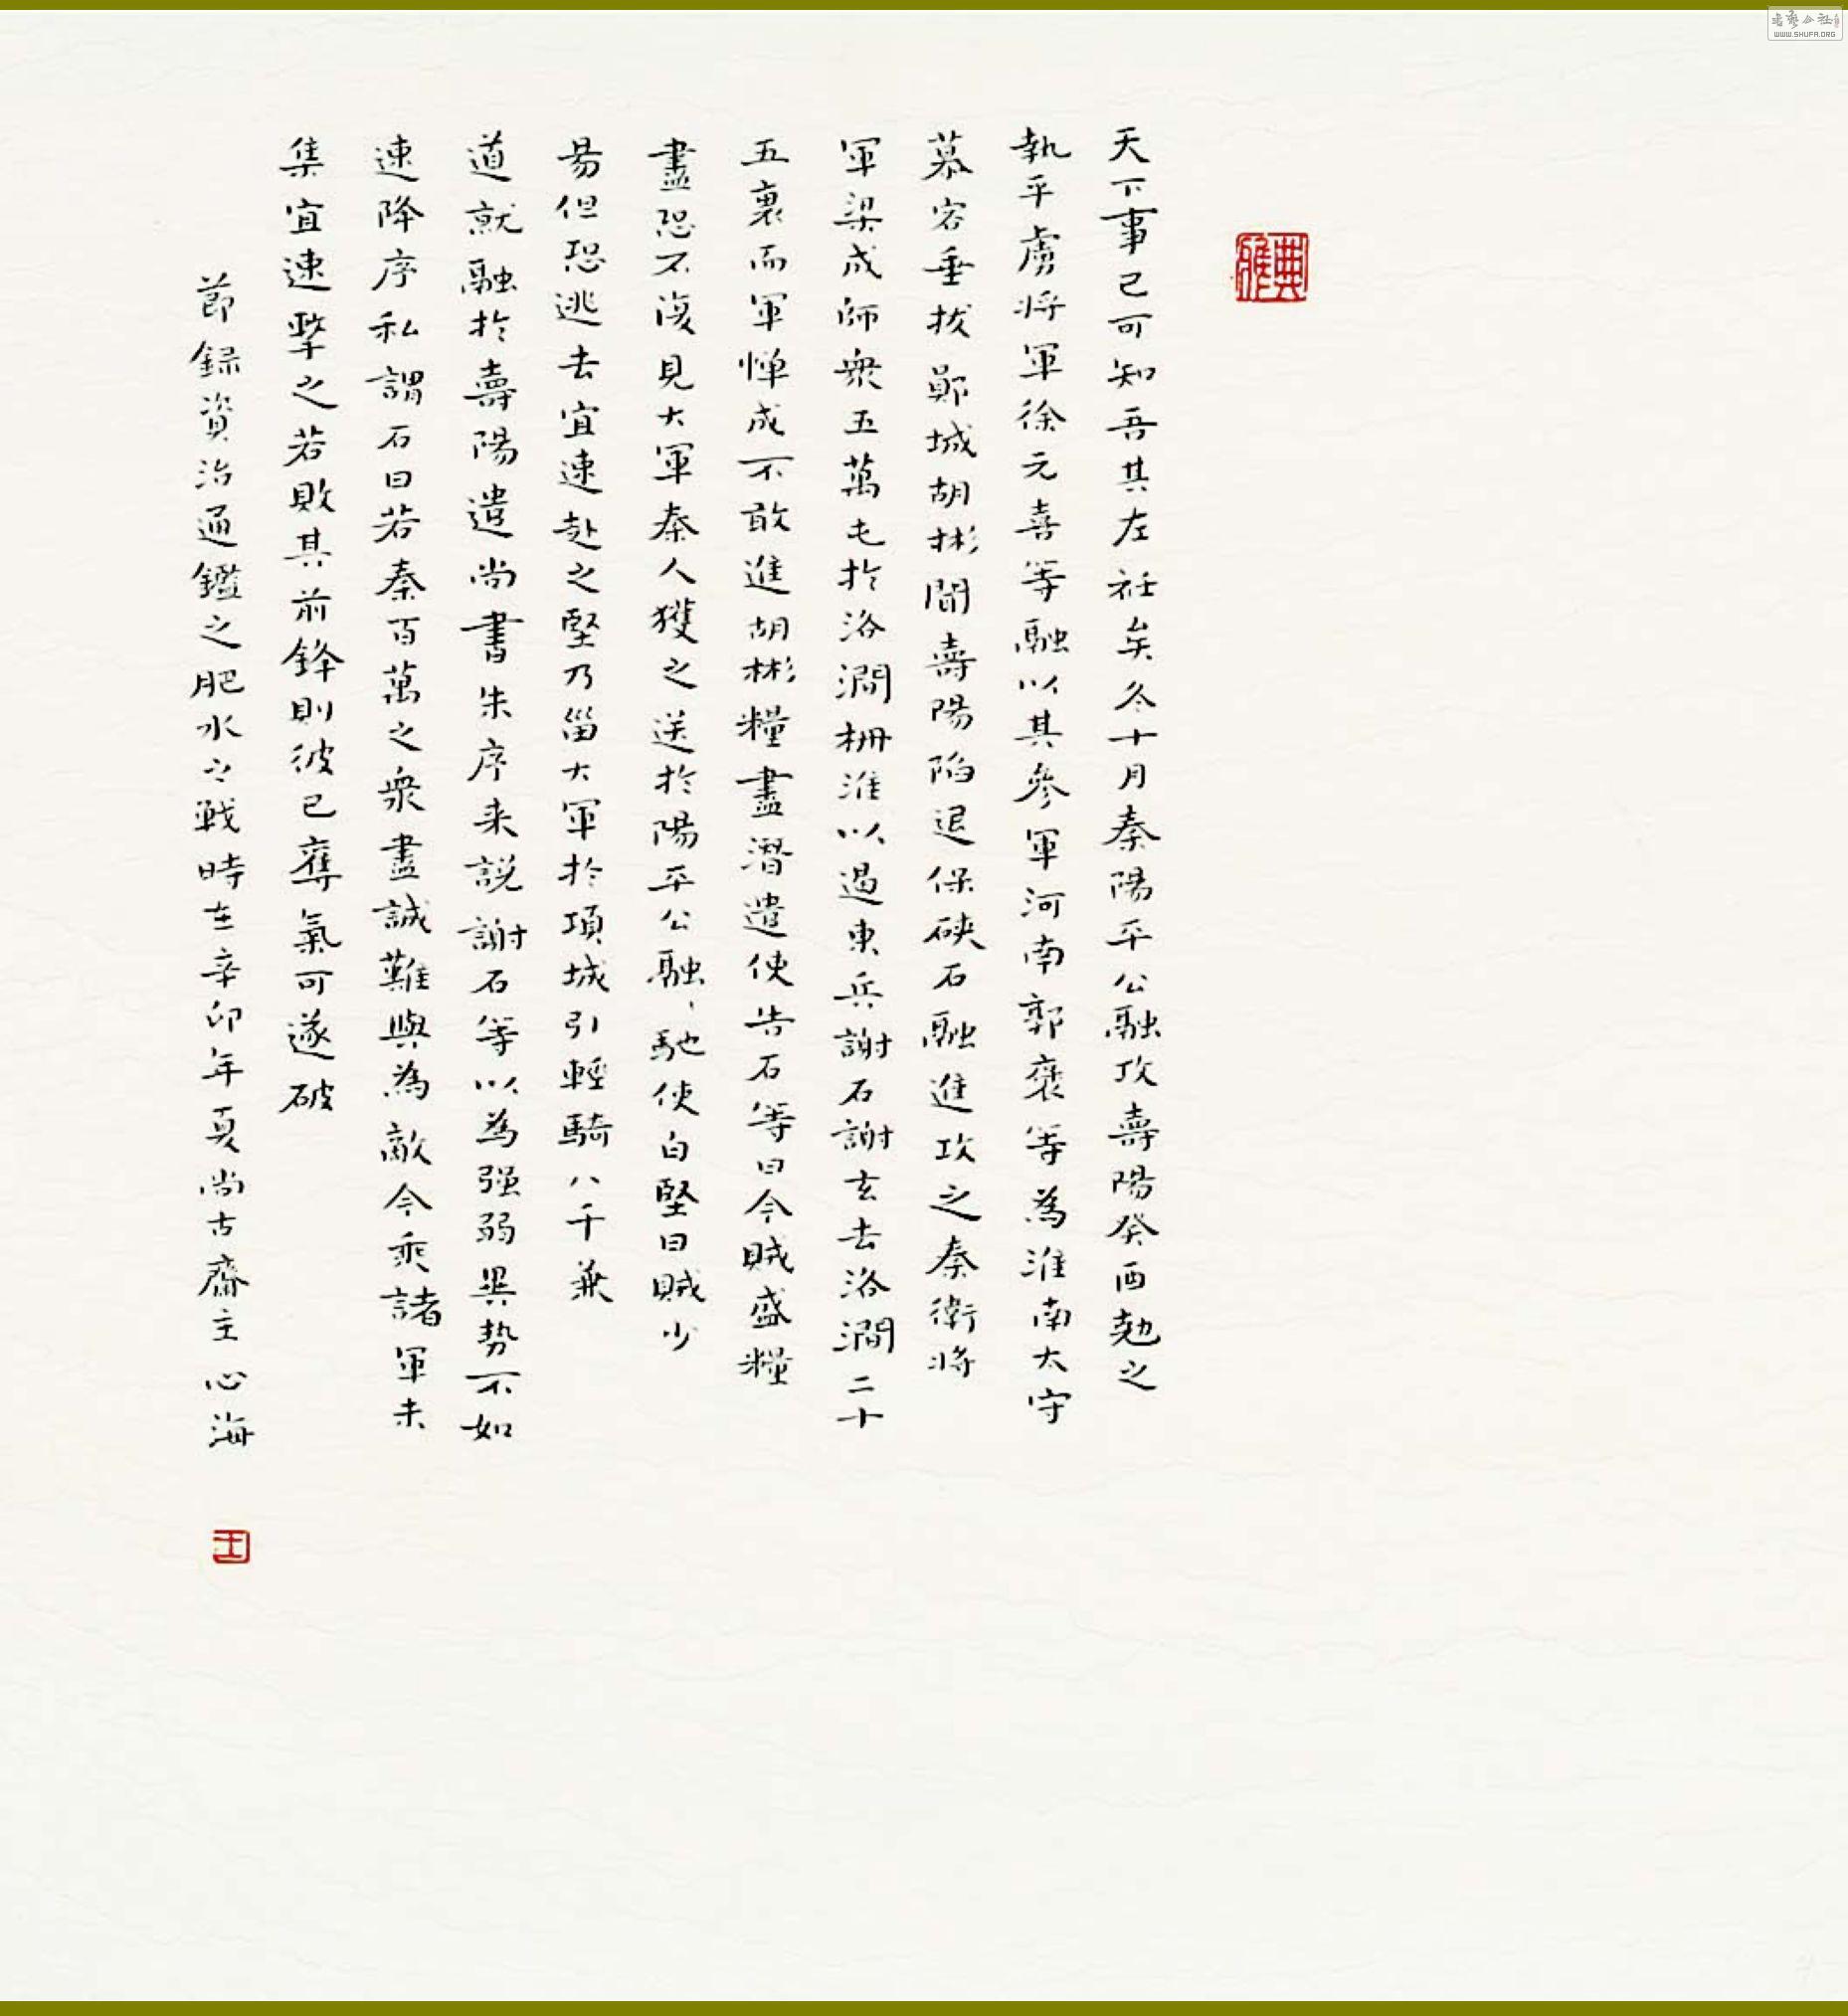 天下事已可知吾其左衽矣冬十月秦陽平公融攻壽陽癸酉勊之
執平虜將軍徐元喜等融以其參軍河南郭褒等為淮南太守
慕容垂拔鄖城胡彬聞壽陽陷退保硤石融進攻之秦衛將
軍梁成師衆五萬屯於洛澗柵淮以遏東兵謝石謝玄去洛澗二十
五裏而軍憚成不敢進胡彬糧盡潛遣使告石等曰今賊盛糧
盡恐不復見大軍秦人獲之送於陽平公融、馳使白堅曰賊少
易但恐逃去宜速赴之堅乃留大軍於項城引輕騎八千兼
道就融於壽陽遣尚書朱序来説謝石等以為强弱異势不如
速降序私謂石曰若秦百萬之衆盡誠難與為敵今乘諸軍未
集宜速擊之若敗其前鋒則彼已奪氣可遂破
節録資治通鑑之肥水之戦時在辛卯年夏尚古齋主心海
典雅
王
书艺公社
WWW.SHUFA.ORG